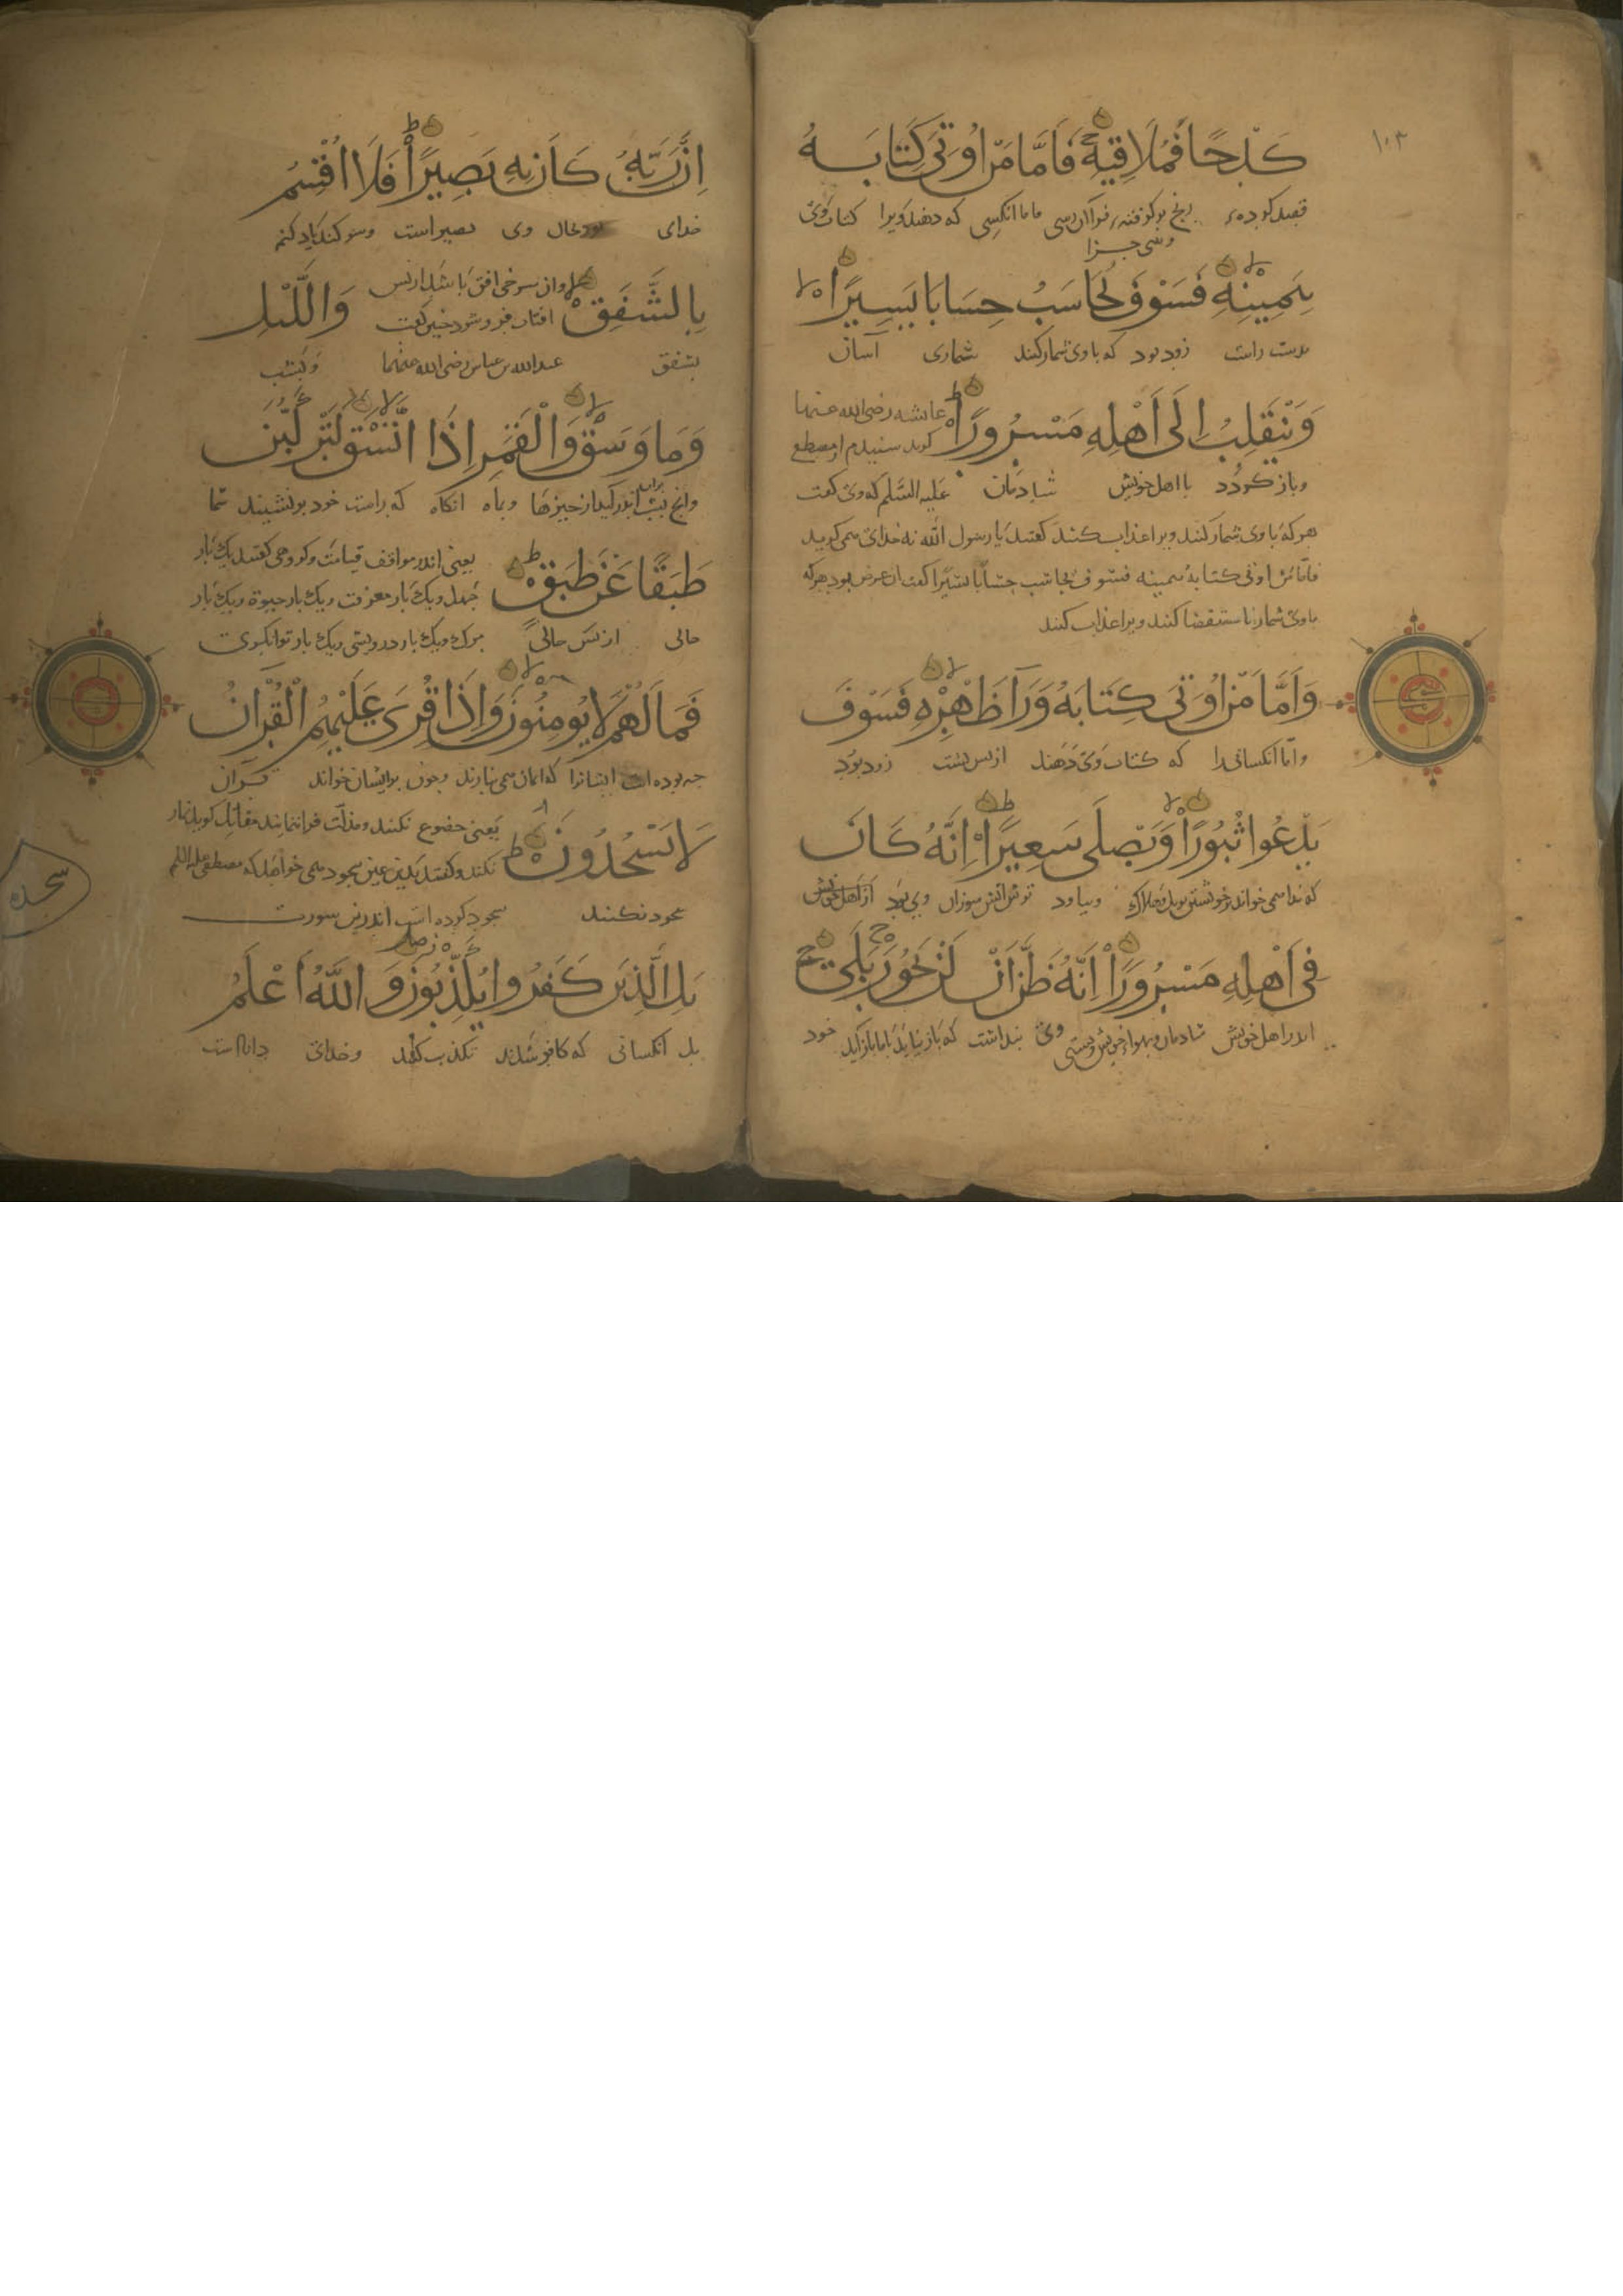 ١٠٣
كَدْحًا فَمُلَاقِيهِ فَاَمَّا مَنْ اُوتِىَ كِتَابَهُ
قصد كرده رنج بر كوفته فرا آن رسى فاما انكسى كه دهند ويرا كتاب وى
وسى جزا
بِيَمِينِهِ فَسَوْفَ يُحَاسَبُ حِسَابًا يَسِيرًا
بدست راست زود بود كه با وى شمار كنند شمارى آسان
وَيَنْقَلِبُ اِلَى اَهْلِهِ مَسْرُورًا عايشه رضى الله عنها
كويد شنيدم از مصطفى
وباز كردد با اهل خويش شادمان عليه السلم كه وى كفت
هر كه با وى شمار كنند ويرا عذاب كنند كفتند يا رسول الله نه خداى مى كويد
فاما من اوتى كتابه بيمينه فسوف يحاسب حسابا يسيرا كفت ان عرض بود هر كه
با وى شمار باستقضا كنند ويرا عذاب كنند
وَاَمَّا مَنْ اُوتِىَ كِتَابَهُ وَرَآءَ ظَهْرِهِ فَسَوْفَ
واما انكسانى را كه كتاب وى دهند از پس پشت زود بود
يَدْعُوا ثُبُورًا وَيَصْلَى سَعِيرًا اِنَّهُ كَانَ
كه ندا مى خواند خويشتن بويل وهلاك وبياود آتش سوزان وى بود از اهل خويش
فِى اَهْلِهِ مَسْرُورًا اِنَّهُ ظَنَّ اَنْ لَنْ يَحُورَ بَلَى
اندر اهل خويش شادمان وبهواء خويش وى پنداشت كه باز نيايد باما باز آيد خود
اِنَّ رَبَّهُ كَانَ بِهِ بَصِيرًا فَلَا اُقْسِمُ
خداى بحال وى بصير است وسوكند ياد كنم
بِالشَّفَقِ وان سرخى افق باشد از پس وَاللَّيْلِ
افتاب فرو شود چنين كفت
بشفق عبد الله بن عباس رضى الله عنهما وبشب
وَمَا وَسَقَ وَالْقَمَرِ اِذَا اتَّسَقَ لَتَرْكَبُنَّ
وانچ شب اندر كيرد از چيزها وبماه انكاه كه راست خود بر نشينند شما
طَبَقًا عَنْ طَبَقٍ يعنى اندر مواقف قيامت وكروهى كفتند يك بار
جهل ويك بار معرفت ويك بار حيوة ويك بار
حالى از پس حالى مرك ويك بار درويشى ويك بار توانكرى
فَمَا لَهُمْ لَا يُومِنُونَ وَاِذَا قُرِىَ عَلَيْهِمُ الْقُرْآنُ
چه بوده است ايشانرا كه ايمان مى نيارند وچون بر ايشان خواند قرآن
لَا يَسْجُدُونَ يعنى خضوع نكنند ومذلت فرا ننمايند مقاتل كويد نماز
نكنند وكفتند بدين عين سجود مى خواهد كه مصطفى عليه السلم
سجود نكنند سجود كرده است اندرين سورت
سجده
بَلِ الَّذِينَ كَفَرُوا يُكَذِّبُونَ وَاللَّهُ اَعْلَمُ
بل انكسانى كه كافر شدند تكذيب كنند وخداى داناست